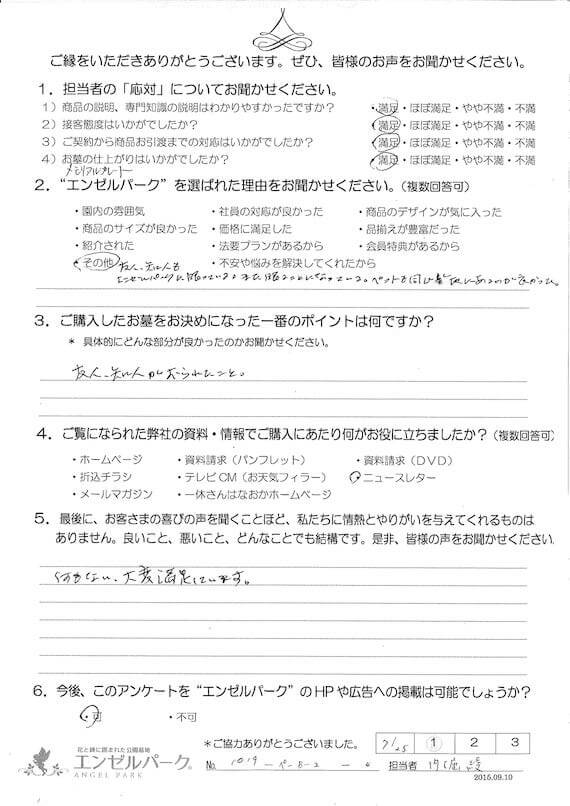 ご縁をいただきありがとうございます。ぜひ、皆様のお声をお聞かせください。
1．担当者の「応対」についてお聞かせください。
1）商品の説明、専門知識の説明はわかりやすかったですか？ ・満足・ほぼ満足・やや不満・不満
2）接客態度はいかがでしたか？ ・満足・ほぼ満足・やや不満・不満
3）ご契約から商品お引渡までの対応はいかがでしたか？ ・満足・ほぼ満足・やや不満・不満
4）お墓の仕上がりはいかがでしたか？ ・満足・ほぼ満足・やや不満・不満
メモリアルプレート
2．“エンゼルパーク”を選ばれた理由をお聞かせください。（複数回答可）
・園内の雰囲気 ・社員の対応が良かった ・商品のデザインが気に入った
・商品のサイズが良かった ・価格に満足した ・品揃えが豊富だった
・紹介された ・法要プランがあるから ・会員特典があるから
・その他 ・不安や悩みを解決してくれたから
友人、知人も
エンゼルパークに眠っている
3．ご購入したお墓をお決めになった一番のポイントは何ですか？
＊ 具体的にどんな部分が良かったのかお聞かせください。
友人、知人がおられたこと。
4．ご覧になられた弊社の資料・情報でご購入にあたり何がお役に立ちましたか？（複数回答可）
・ホームページ ・資料請求（パンフレット） ・資料請求（DVD）
・折込チラシ ・テレビCM（お天気フィラー） ・ニュースレター
・メールマガジン ・一休さんはなおかホームページ
5．最後に、お客さまの喜びの声を聞くことほど、私たちに情熱とやりがいを与えてくれるものは
ありません。良いこと、悪いこと、どんなことでも結構です。是非、皆様の声をお聞かせください
何もない、大変満足しています。
6．今後、このアンケートを“エンゼルパーク”のHPや広告への掲載は可能でしょうか？
・可 ・不可
＊ご協力ありがとうございました。 7/25 1 2 3
花と緑に囲まれた公園墓地
エンゼルパーク®
ANGEL PARK
No. 1019 担当者
2015.09.10